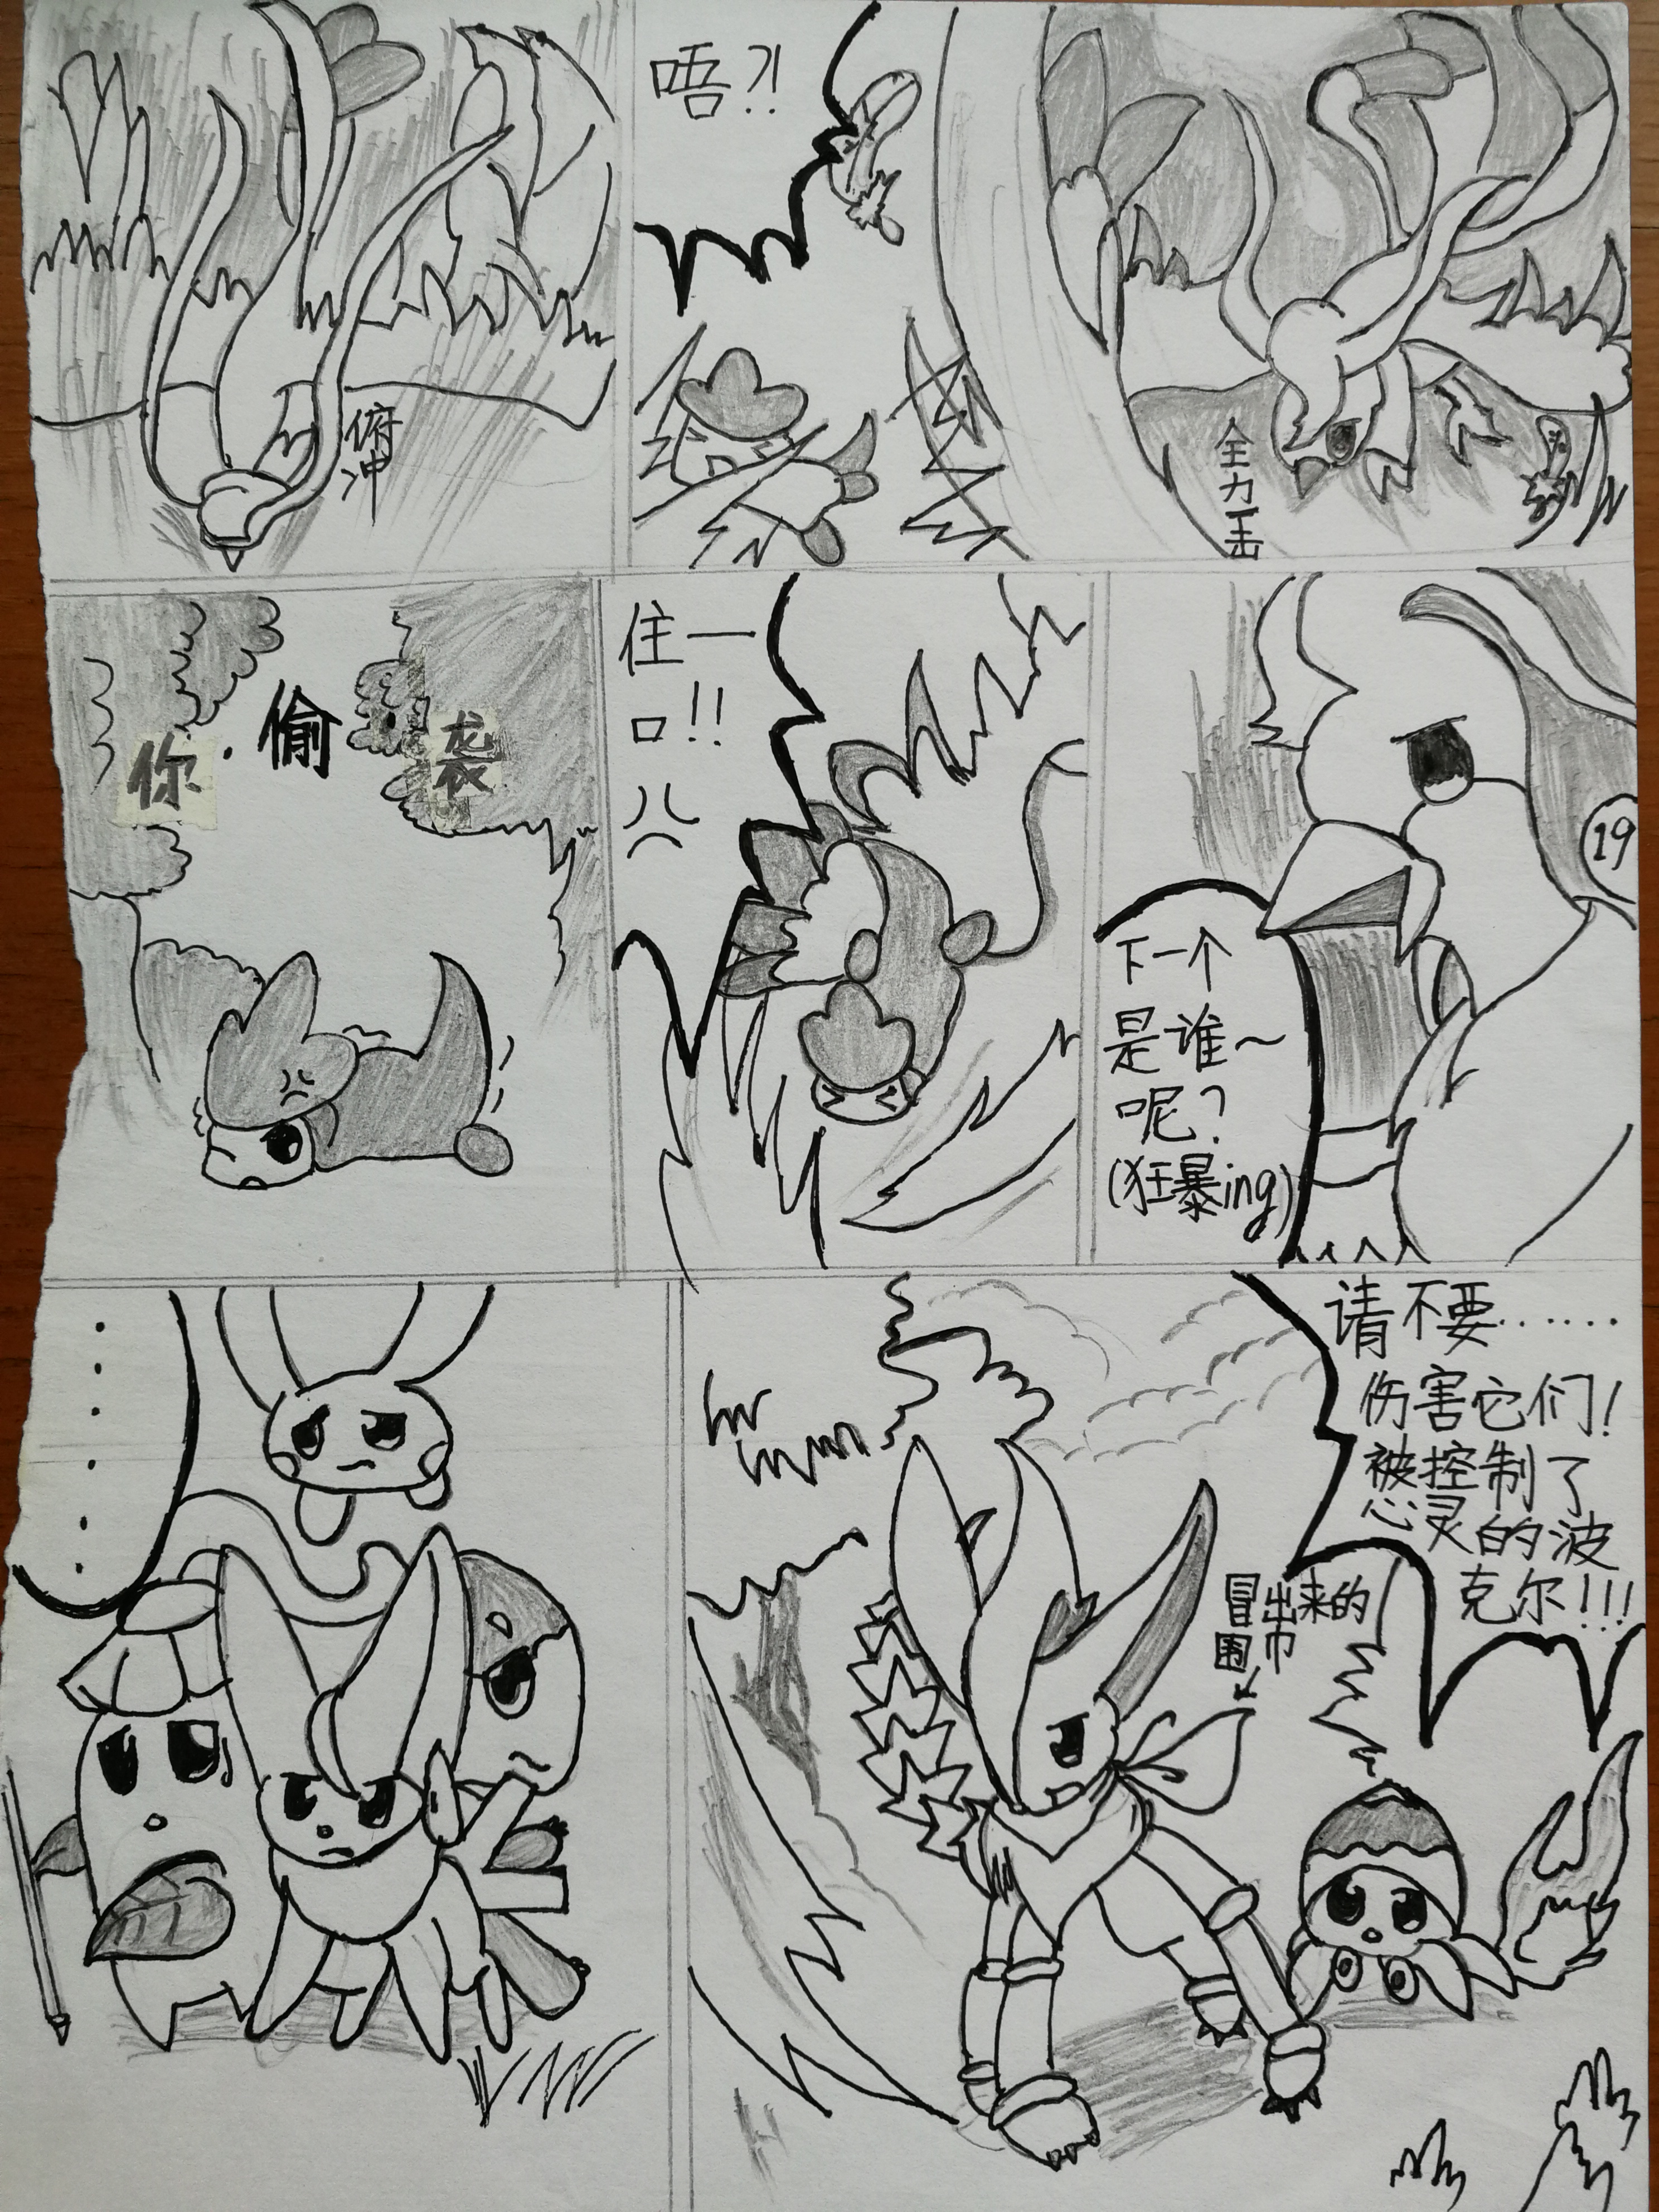 俯
冲
唔?!
全
力
一
击
你·偷袭
住一
口!!
19
下一个
是谁~
呢?
(狂暴ing)
......
请不要......
伤害它们!
被控制了
心灵的波
克尔!!!
冒出来的
围巾